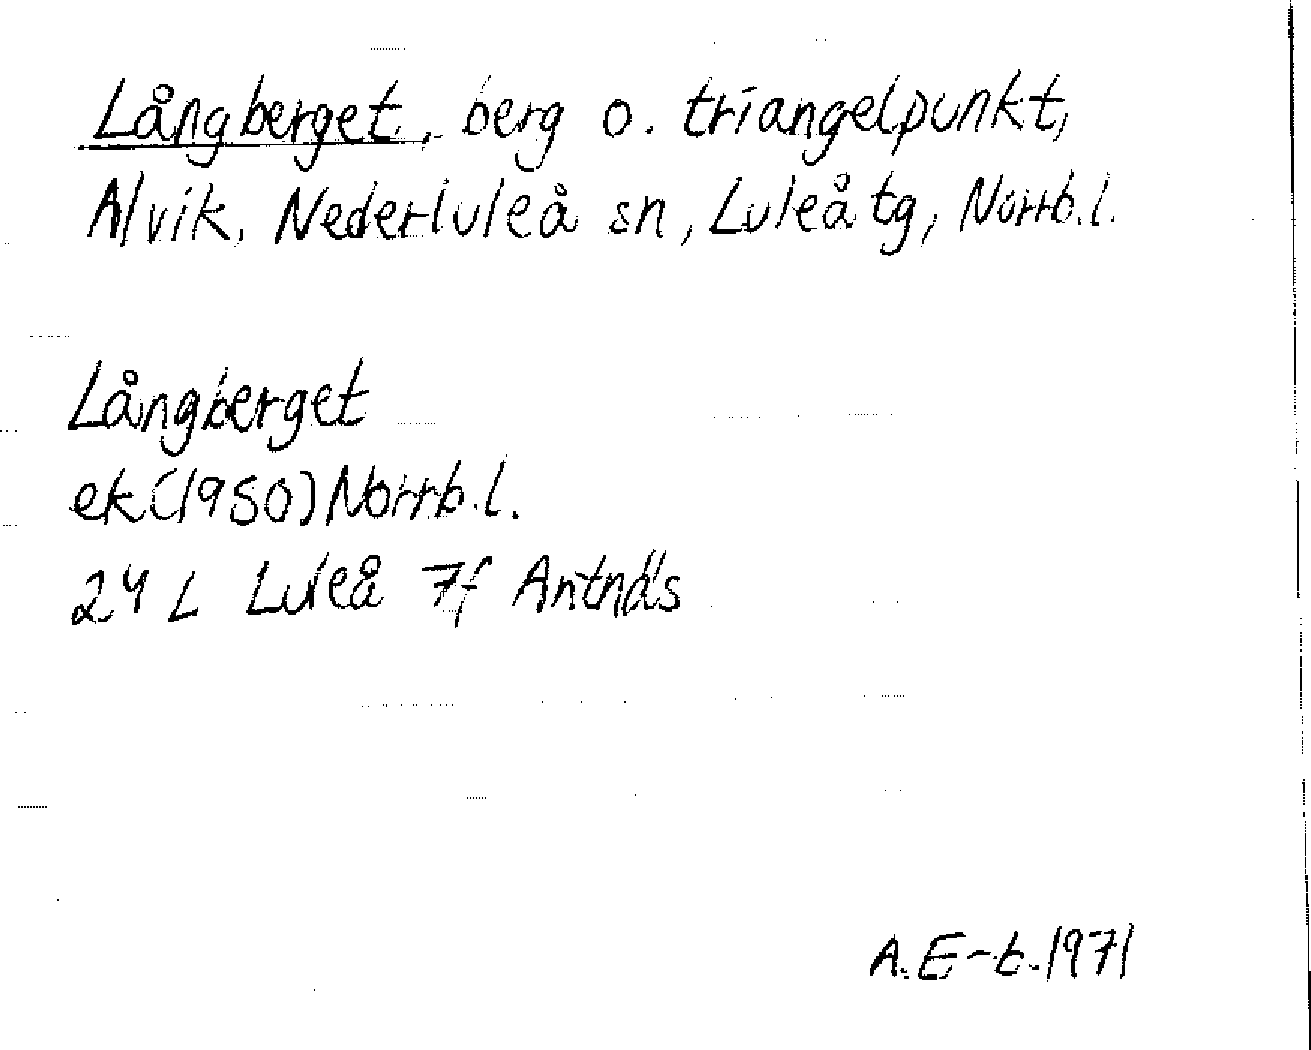 Långberget, berg o. triangelpunkt,
Alvik, Nederluleå sn, Luleå tg, Norrb.l.
Långberget
ek(1950)Norrb.l.
24 L Luleå 7f Antnäs
A.E-t.1971